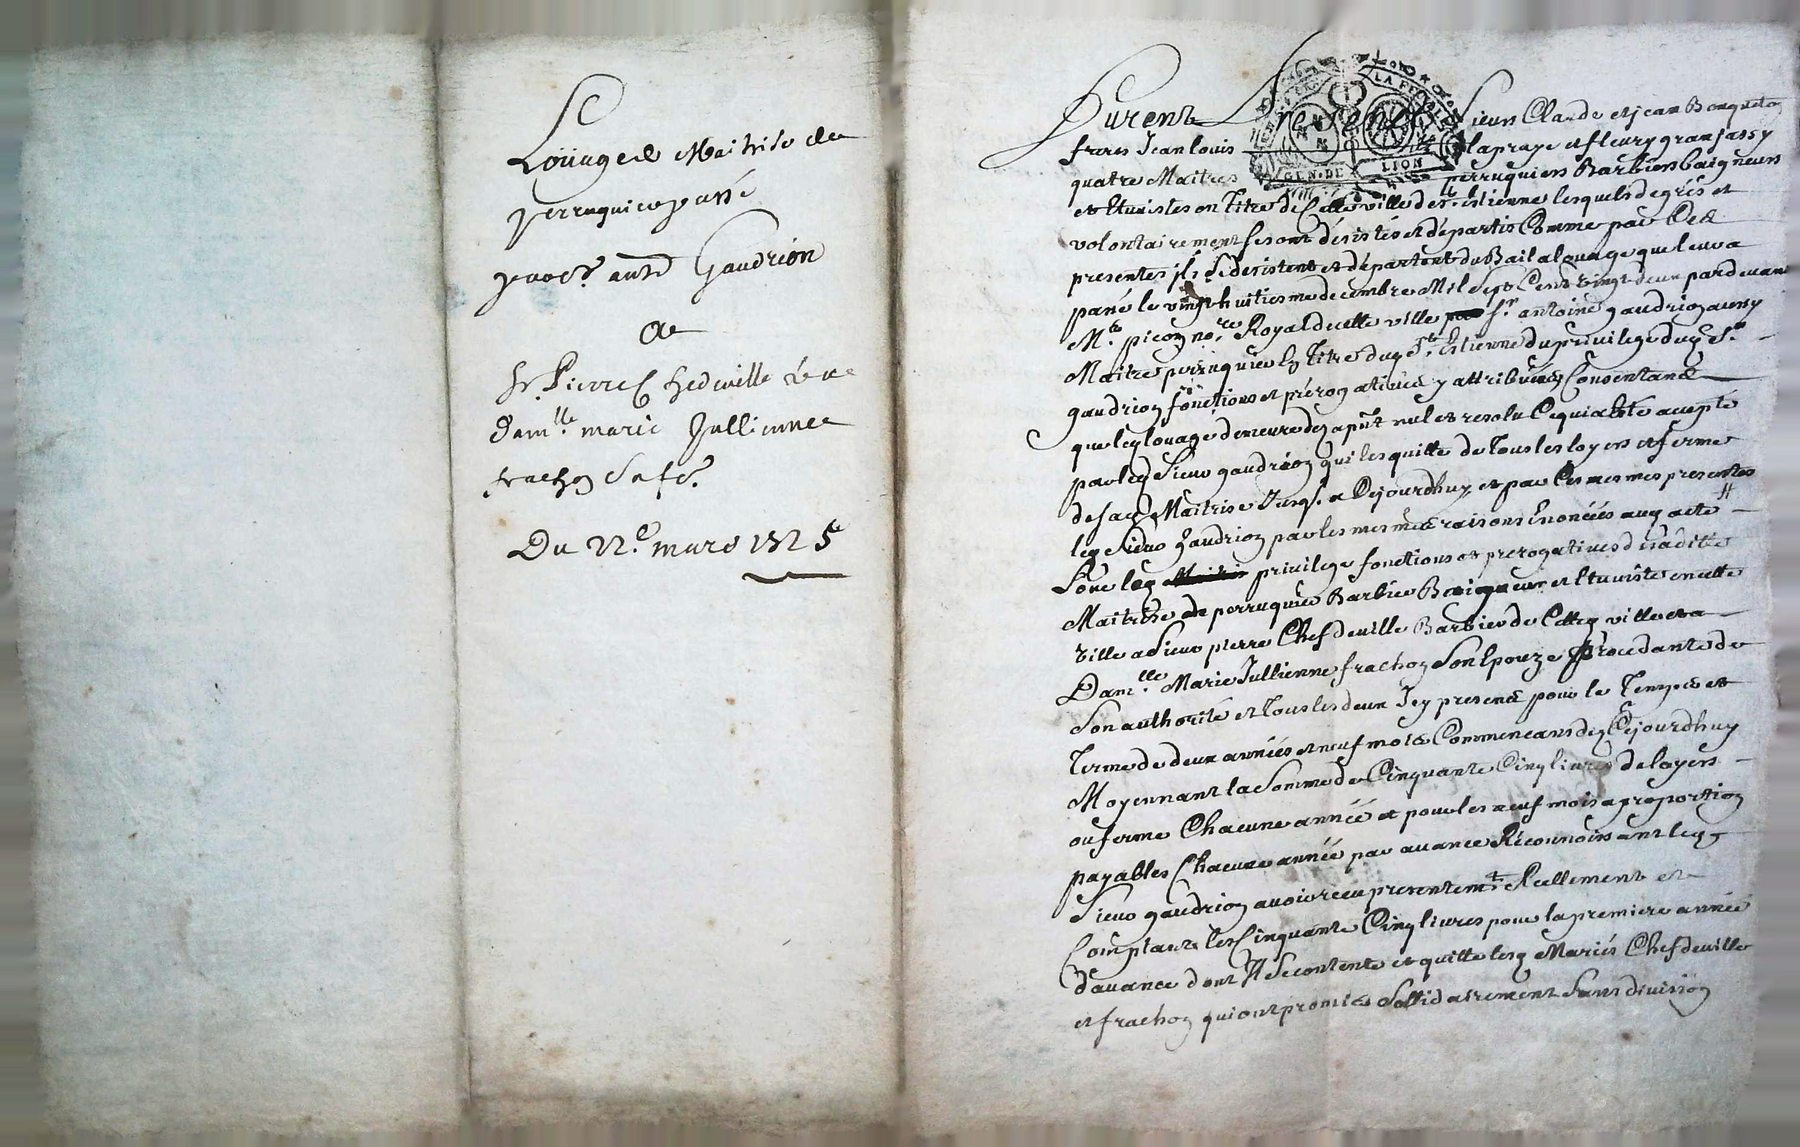 Loüage de Maitrise de
perruquier passé
par sr. antd Gaudrion
a
Sr. Pierre Chedeville & a
dam.lle marie Jullienne
frachon sa fe.
Du 22.e mars 1725
Furent Presents Sieurs Claude et jean Bonqueton
freres Jean louis laproye et fleury granjassy
quatre Maitres perruquiers Barbiers baigneurs
et Etuvistes en titre de Cette ville de st. estienne lesquels de grés et
volontairement se sont désistés et départis Comme par Ces
presentes ils se desistent et départent du Bail a louage que leur a
passé le vingt huitiesme decembre Mil Sept Cents vingt deux pardevant
Me. picon no.re Royal de cette ville sr. antoine gaudrion aussy
Maitre perruquier En titre dud St. Estienne du privilege dud Sr.
gaudrion fonctions et prérogatives y attribuées Consentans
que led louage demeure des a pnt nul et resolu Ce qui a été accepté
par led Sieur gaudrion qui les quitte de tous les loyers et ferme
de sad Maitrise Jusq. a Cejourdhuy et par Ces mesmes presentes
led Sieur Gaudrion par les mesmes raisons Enoncées aud acte
Loue led privilege fonctions et prerogatives de sa ditte
Maitrise de perruquier Barbier Baigneur et Etuviste en cette
ville a Sieur pierre Chefdeville Barbier de Cette ville et a
Dam.lle Marie Jullienne frachon Son Epouze procedante de
Son authorité et tous les deux Icy presens pour le temps et
terme de deux années et neuf mois Commencans dez Cejourdhuy
Moyennant la Somme de Cinquante Cinq livres de loyers
ou ferme Chacune année et pour les neuf mois a proportion
payables Chacune année par avance Reconnoissant led
Sieur gaudrion avoir receu presentemt. Reellement et
Comptant les Cinquante Cinq livres pour la premiere année
d'avance dont Il Se contente et quitte lesd Mariés Chefdeville
et frachon qui ont promis Sollidairement Sans division
GEN. DE LION